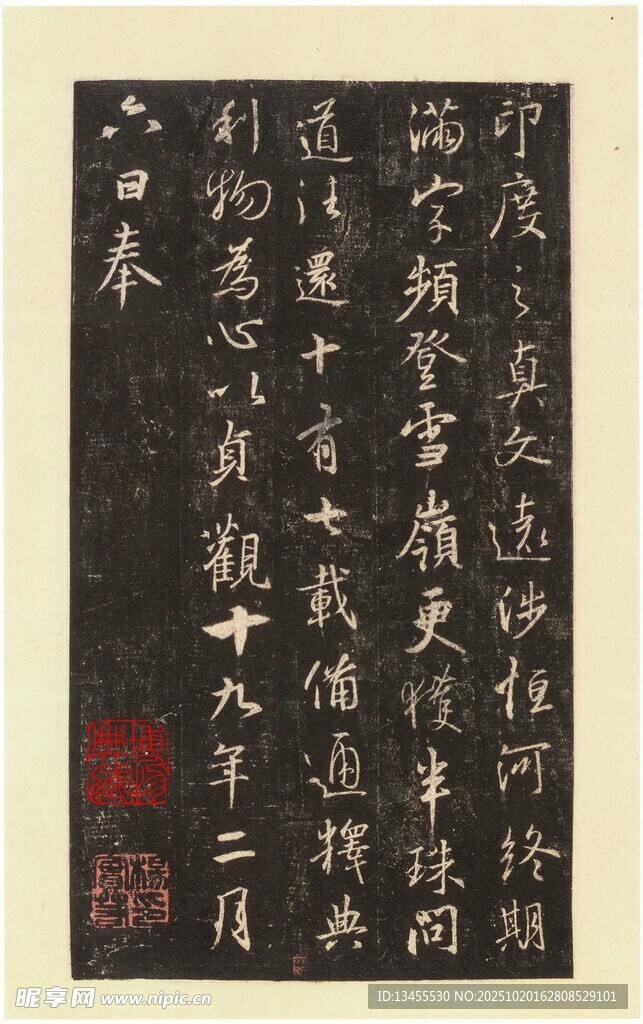 印度之真文遠涉恒河終期
滿字頻登雪嶺更獲半珠問
道法還十有七載備通釋典
利物為心以貞觀十九年二月
六日奉
昵享网 www.nipic.cn
ID:13455530 NO:20251020162808529101